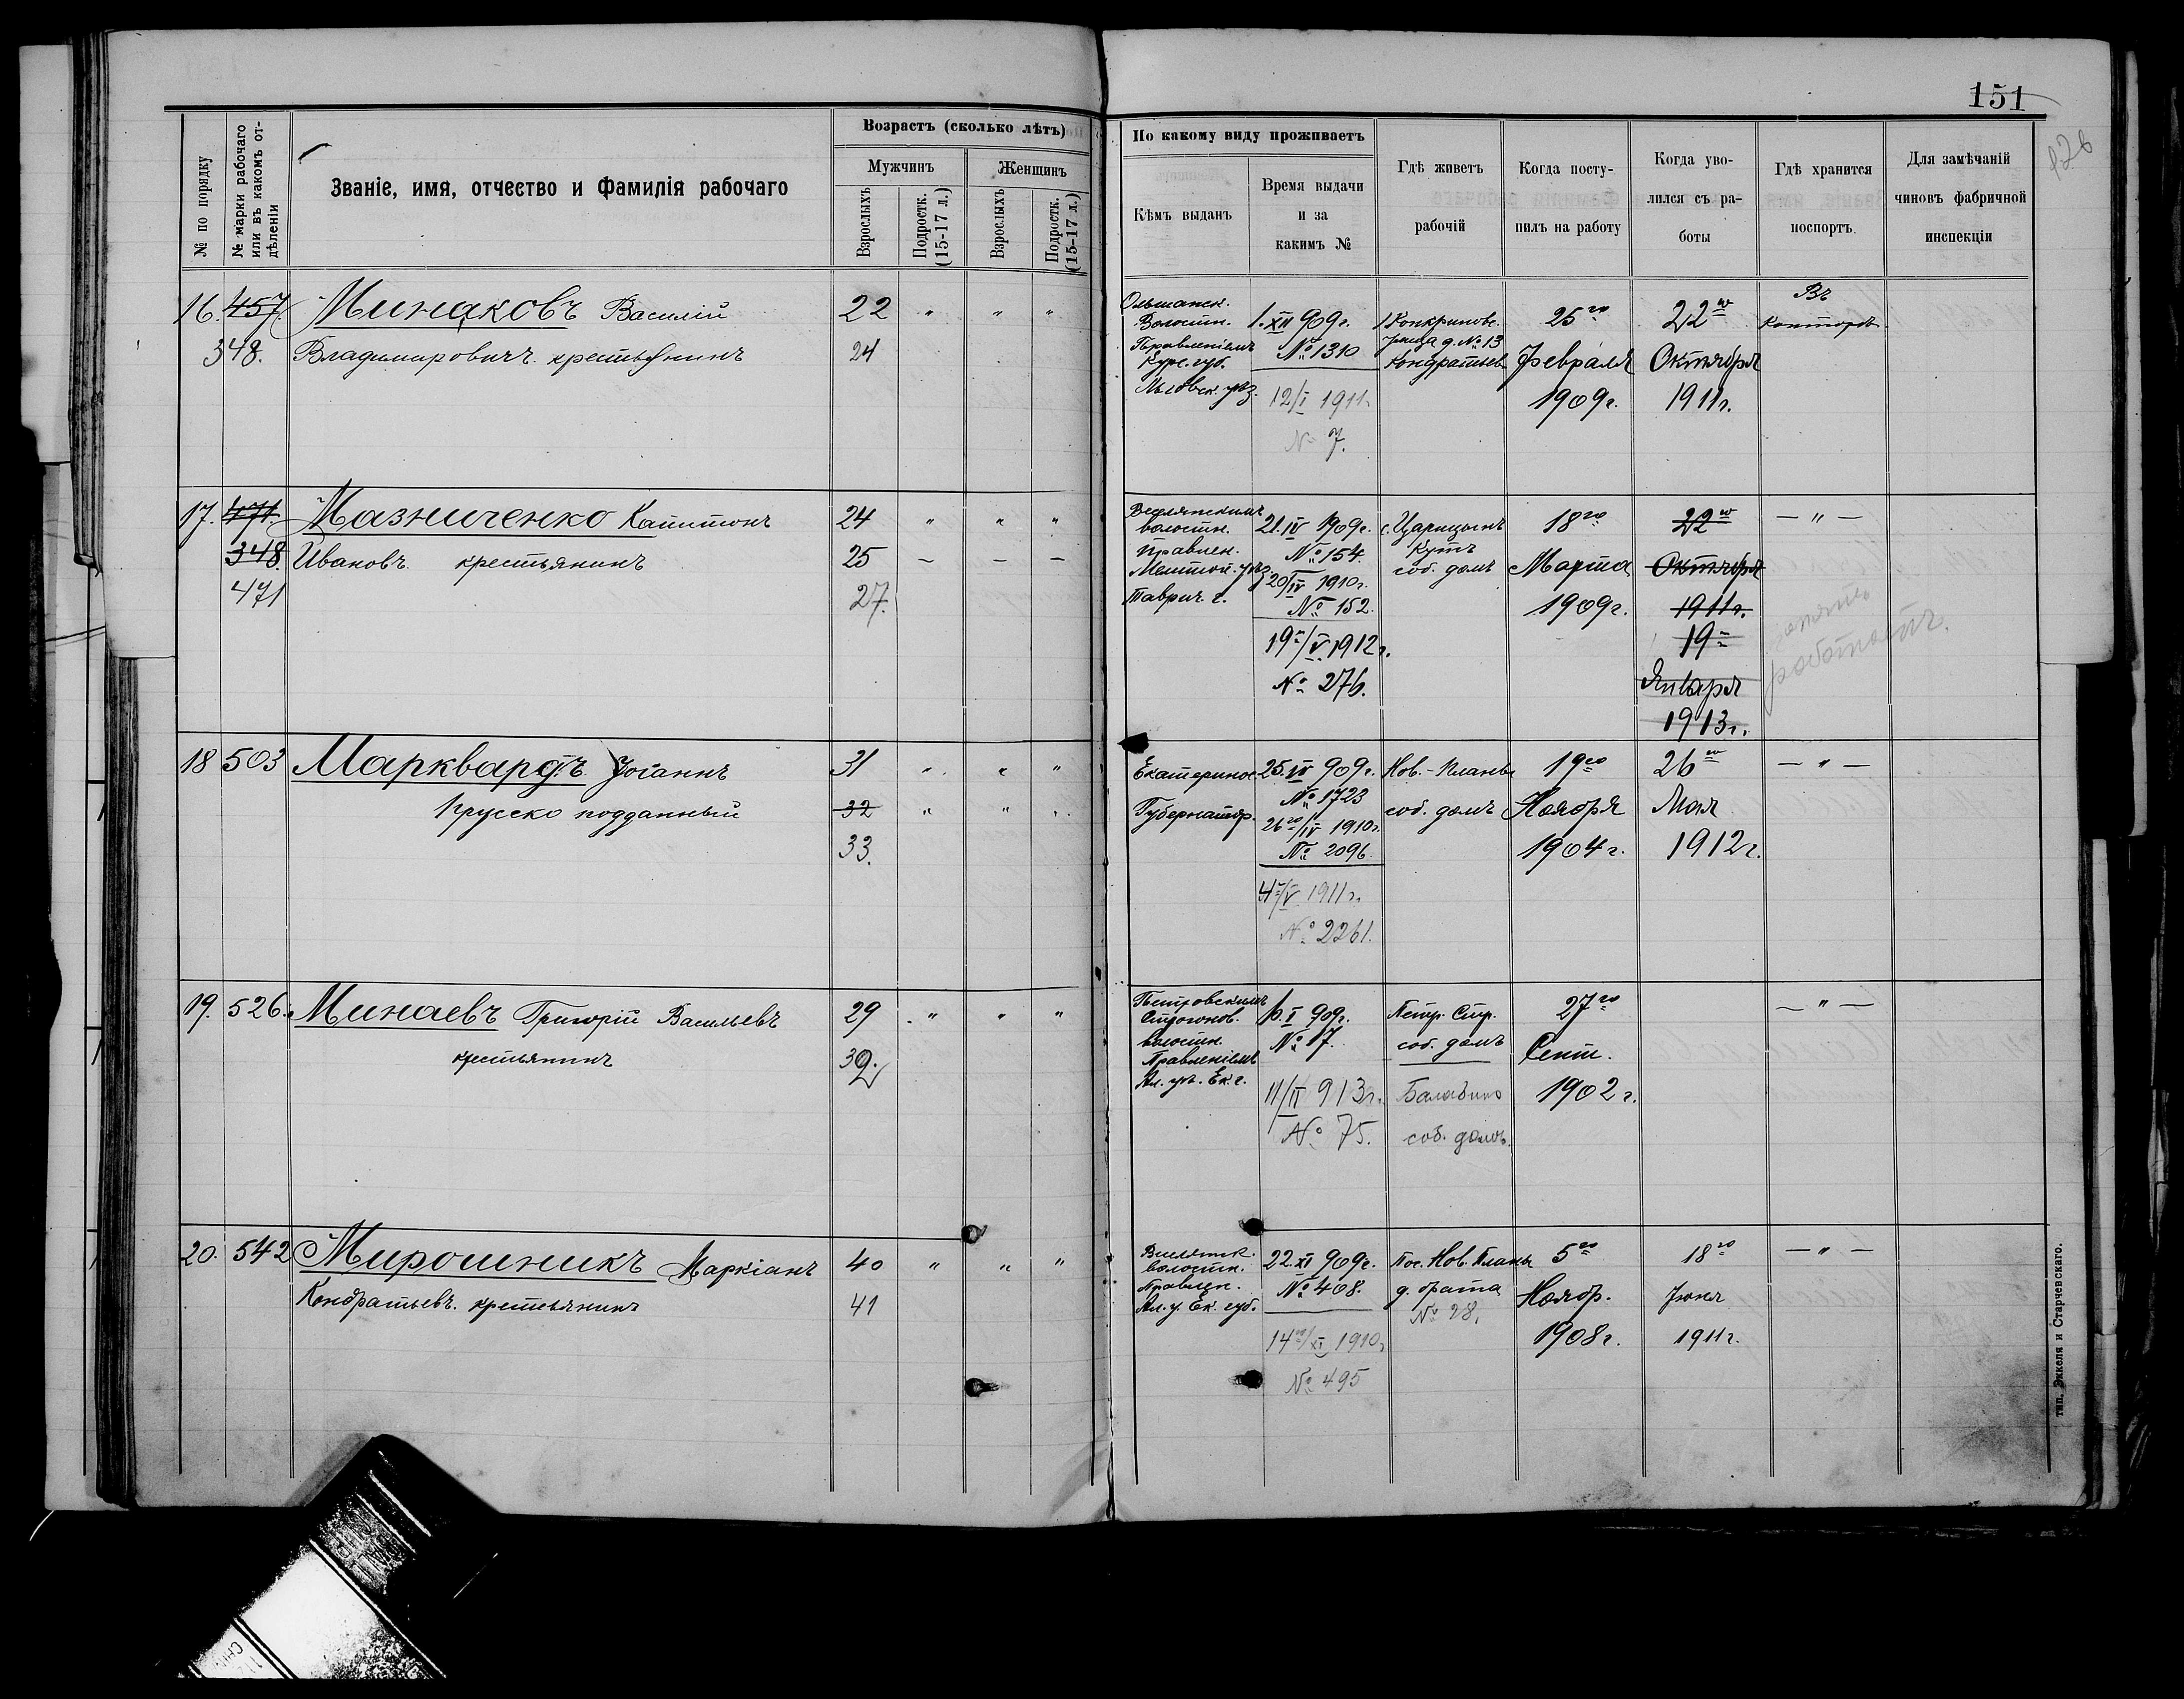 151
№ по порядку
№ марки рабочаго или въ какомъ отдѣленіи
Званіе, имя, отчество и фамилія рабочаго
Возрастъ (сколько лѣтъ)
Мужчинъ
Женщинъ
Взрослыхъ
Подростк. (15-17 л.)
Взрослыхъ
Подростк. (15-17 л.)
По какому виду проживаетъ
Кѣмъ выданъ
Время выдачи
и за
какимъ №
Гдѣ живетъ
рабочій
Когда посту-
пилъ на работу
Когда уво-
лился съ ра-
боты
Гдѣ хранится
поспортъ
Для замѣчаній
чиновъ фабричной
инспекціи
16. 457. Минаковъ Василій 22 " " "
348. Владимировичъ крестьянинъ 24
Ольшанск.
Волостн.
Правленіемъ
Курс. губ.
Льговск. уѣз.
1. XII 909 г.
№ 1310
12/I 1911 г.
№ 7.
улица д. № 13
Кондратьев
25го
Февраля
1909 г.
22го
Октября
1911 г.
Въ
Конторѣ
17. 471. Мазниченко Капитонъ 24 " " "
348. Ивановъ крестьянинъ 25 – – –
471 27.
Веселянскимъ
волостн.
Правлен.
Мелитоп. уѣз
Таврич. г.
21. IV 1909 г.
№ 154.
20/IV 1910 г.
№ 152.
19го/V 1912 г.
№ 276.
с. Царицынъ
Кутъ
соб. домъ
18го
Марта
1909 г.
22го
Октября
1911 г.
19го
Января
1913 г.
— " —
опять
работаетъ.
18 503 Марквардъ Іоганнъ 31 " " "
Прусско подданный 32 " " "
33.
Екатеринос
Губернатор.
25. IV 909 г.
№ 1723
26го/IV 1910 г.
№ 2096.
4го/V 1911 г.
№ 2261.
Нов.-Планы
соб. домъ
19го
Ноября
1904 г.
26го
Мая
1912 г.
— " —
19. 526. Минаевъ Григорій Васильевъ 29 " " "
крестьянинъ
Петровскимъ
волостн.
Правленіемъ
Ал. уѣ. Ек. г.
I 909 г.
№ 17.
11/II 913 г.
№ 75.
Петр. Стр.
соб. домъ
Балабино
соб. домъ.
27го
Сент.
1902 г.
— " —
20. 542 Мирошникъ Маркіанъ 40 " " "
Кондратьевъ. крестьянинъ 41
волостн.
Правлен.
Ал. у. Ек. губ.
22. XI 909 г.
№ 408.
14го/XI 1910 г.
№ 495
Пос. Нов. Планы
д. брата
№ 28.
5го
Ноябр.
1908 г.
18го
Іюня
1911 г.
— " —
тип. Эккеля и Старчевскаго.